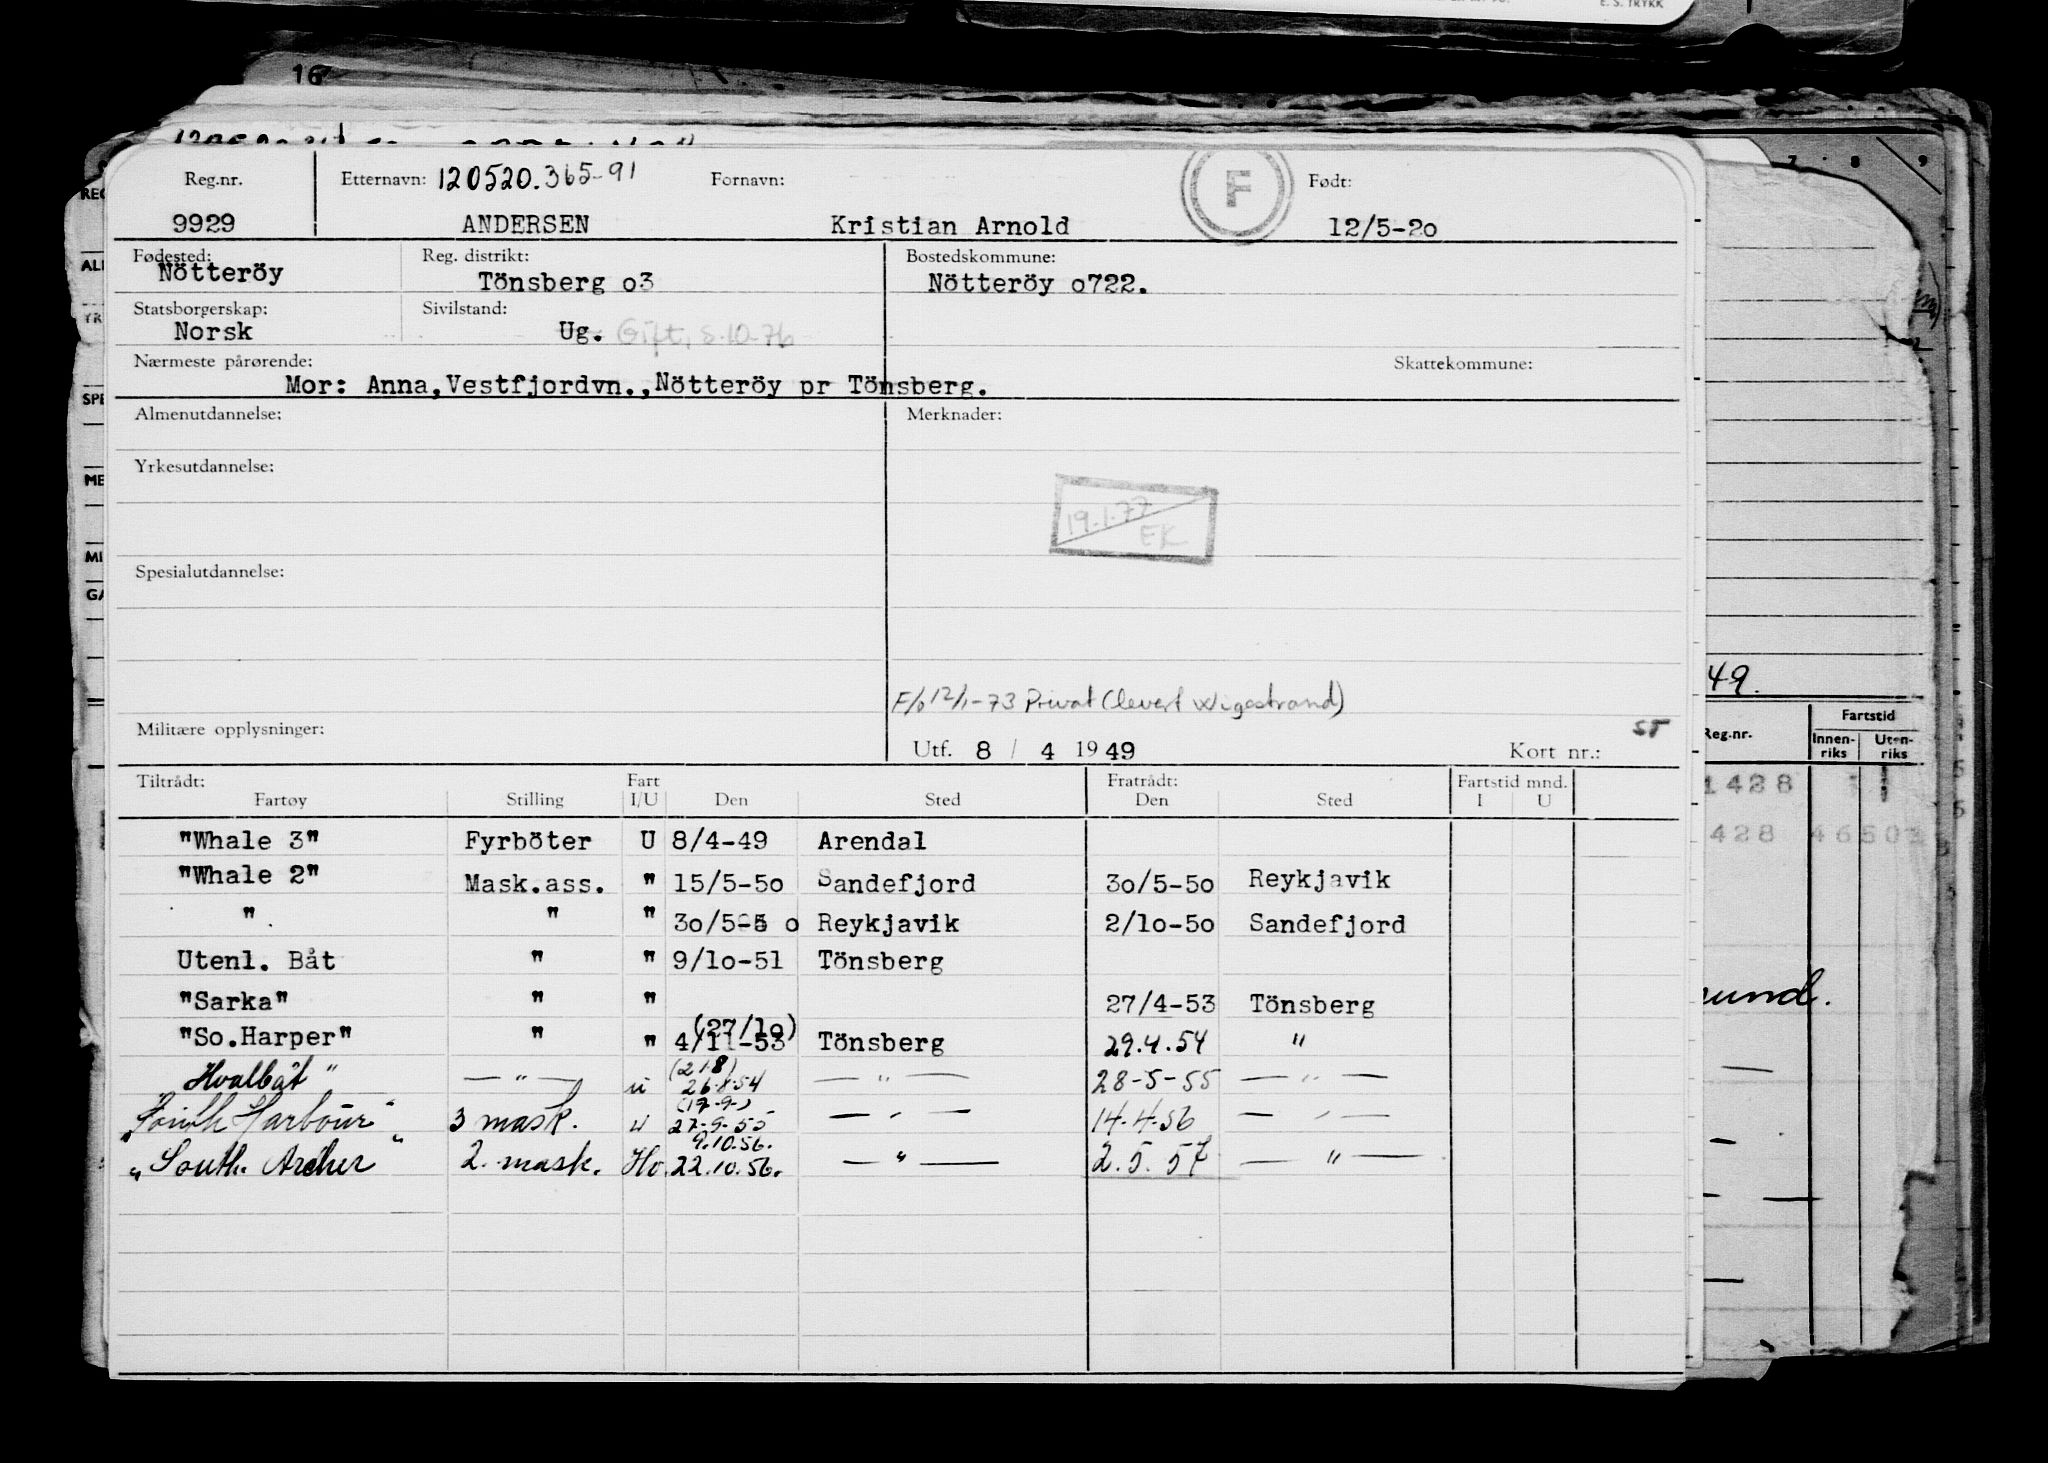 E. S. TRYKK
16
Reg.nr. Etternavn: 120520.365-91 Fornavn: F Født:
9929 ANDERSEN Kristian Arnold 12/5-20
Fødested: Reg. distrikt: Bostedskommune:
Nötteröy Tönsberg o3 Nötteröy o722.
Statsborgerskap: Sivilstand:
Norsk Ug. Gift, 8.10-76
Nærmeste pårørende: Skattekommune:
Mor: Anna,Vestfjordvn.,Nötteröy pr Tönsberg.
Almenutdannelse: Merknader:
Yrkesutdannelse:
19.1.77
EK
Spesialutdannelse:
F/o 12/1-73 Privat (levert Wigestrand)
Militære opplysninger: ST
Utf. 8 / 4 1949 Kort nr.:
Tiltrådt: Fart Fratrådt: Fartstid mnd.
Fartøy Stilling I/U Den Sted Den Sted I U
"Whale 3" Fyrböter U 8/4-49 Arendal
"Whale 2" Mask.ass. " 15/5-5o Sandefjord 3o/5-5o Reykjavik
" " " 3o/5-5 o Reykjavik 2/lo-5o Sandefjord
Utenl. Båt " " 9/lo-51 Tönsberg
"Sarka" " " 27/4-53 Tönsberg
(27/lo)
"So.Harper" " " 4/11-53 Tönsberg 29.4.54 "
(21.8)
Hvalbåt " — " — u 26.8.54 — " — 28-5-55 — " —
(19.9.)
"South Harbour" 3 mask. u 27-9-55 — " — 14.4.56 — " —
9.10.56.
"South. Archer" 2. mask. Hv. 22.10.56. — " — 2.5.57 — " —
7 8 9
49.
Reg.nr. Fartstid
Innen-riks Uten-riks
1428
428 46501
und.